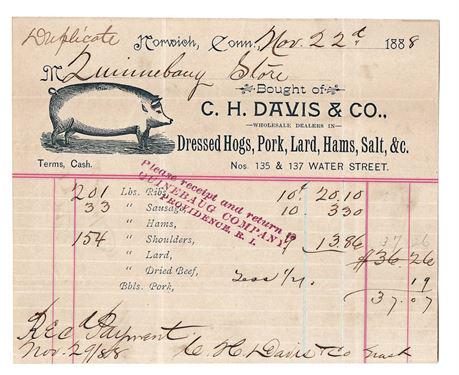 Duplicate
Norwich, Conn., Nov. 22d 1888
M Quinnebaug Store
Bought of
C. H. DAVIS & CO.,
WHOLESALE DEALERS IN
Dressed Hogs, Pork, Lard, Hams, Salt, &c.
Terms, Cash.
Nos. 135 & 137 WATER STREET.
Please receipt and return to
QUINEBAUG COMPANY
PROVIDENCE, R. I.
201 Lbs. Ribs, 10¢ 20.10
33 " Sausage, 10 3 30
" Hams,
154 " Shoulders, 9 13.86 37 26
" Lard, $36.26
" Dried Beef, Less 19
Bbls. Pork, 37.07
Rec'd Payment
Nov. 29/88 C. H. Davis & Co